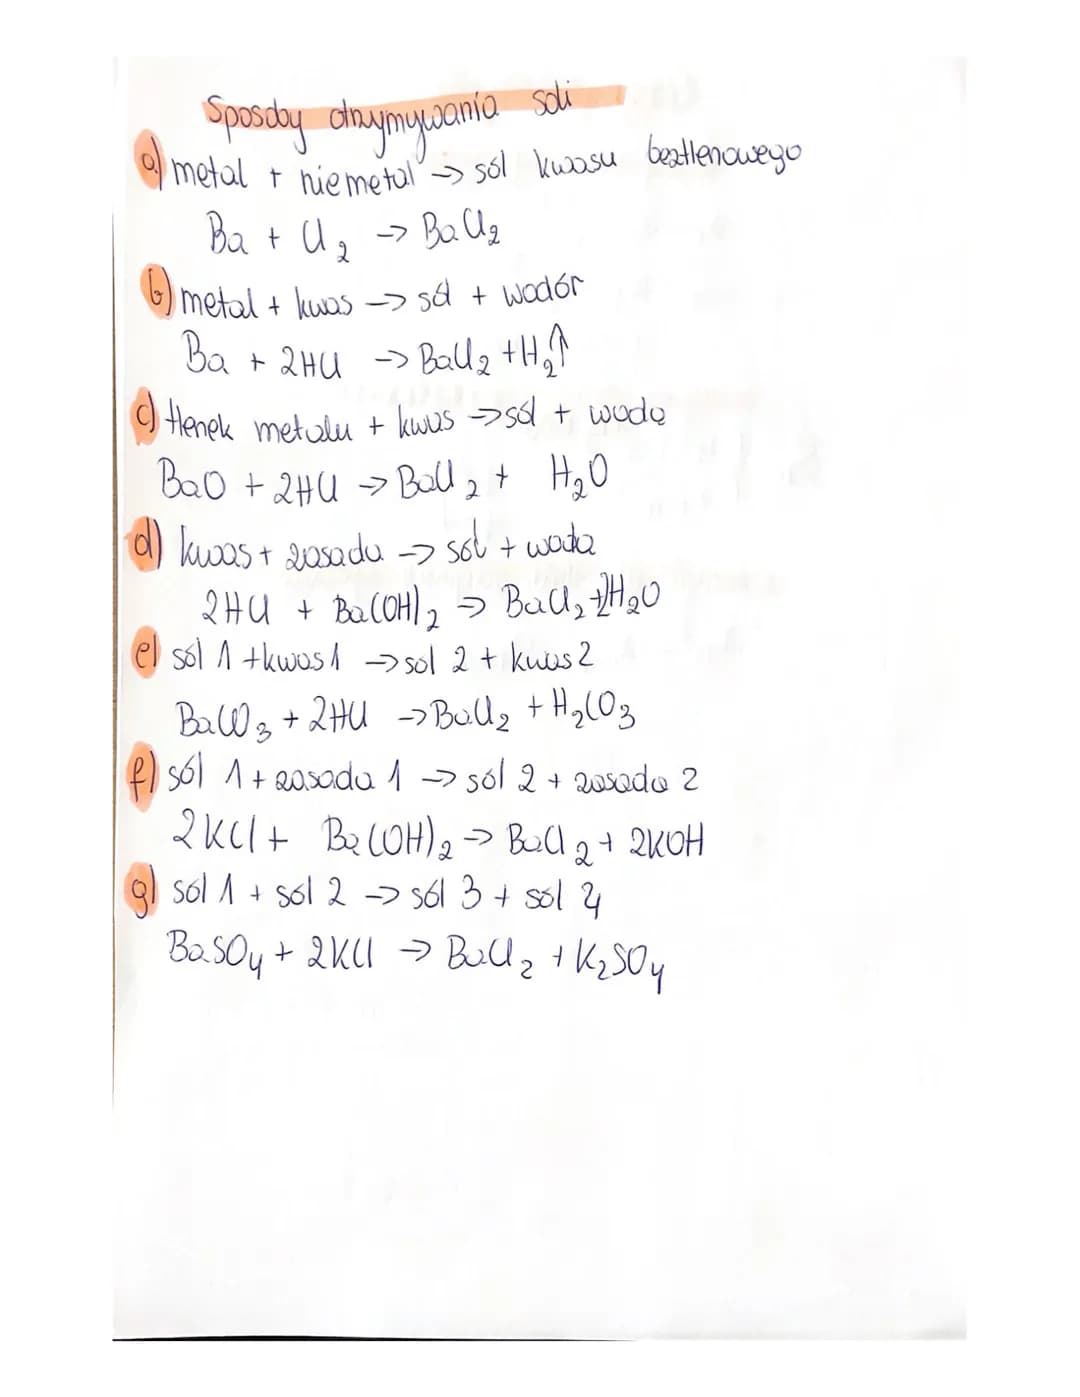 Sposoby otrzymywania soli
a) metal + niemetal → sól kwasu beztlenowego
Ba + Cl₂ → BaCl₂
b) metal + kwas → sól + wodór
Ba + 2HCl → BaCl₂ + H₂↑
c) tlenek metalu + kwas → sól + woda
BaO + 2HCl → BaCl₂ + H₂O
d) kwas + zasada → sól + woda
2HCl + Ba(OH)₂ → BaCl₂ + 2H₂O
e) sól 1 + kwas 1 → sol 2 + kwas 2
BaCO₃ + 2HCl → BaCl₂ + H₂CO₃
f) sól 1 + zasada 1 → sól 2 + zasada 2
2KCl + Ba(OH)₂ → BaCl₂ + 2KOH
g) sól 1 + sól 2 → sól 3 + sól 4
BaSO₄ + 2KCl → BaCl₂ + K₂SO₄